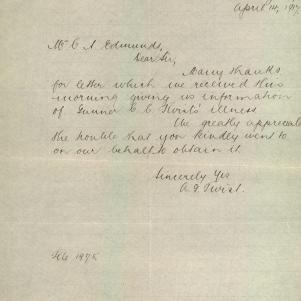 April 14, 1917
Mr C A Edmunds,
Dear Sir,
Many thanks
for letter which we received this
morning giving us information
of Gunner C. C. Twist's illness
We greatly appreciate
the trouble that you kindly went to
on our behalf to obtain it.
Sincerely Yrs
A. J. Twist.